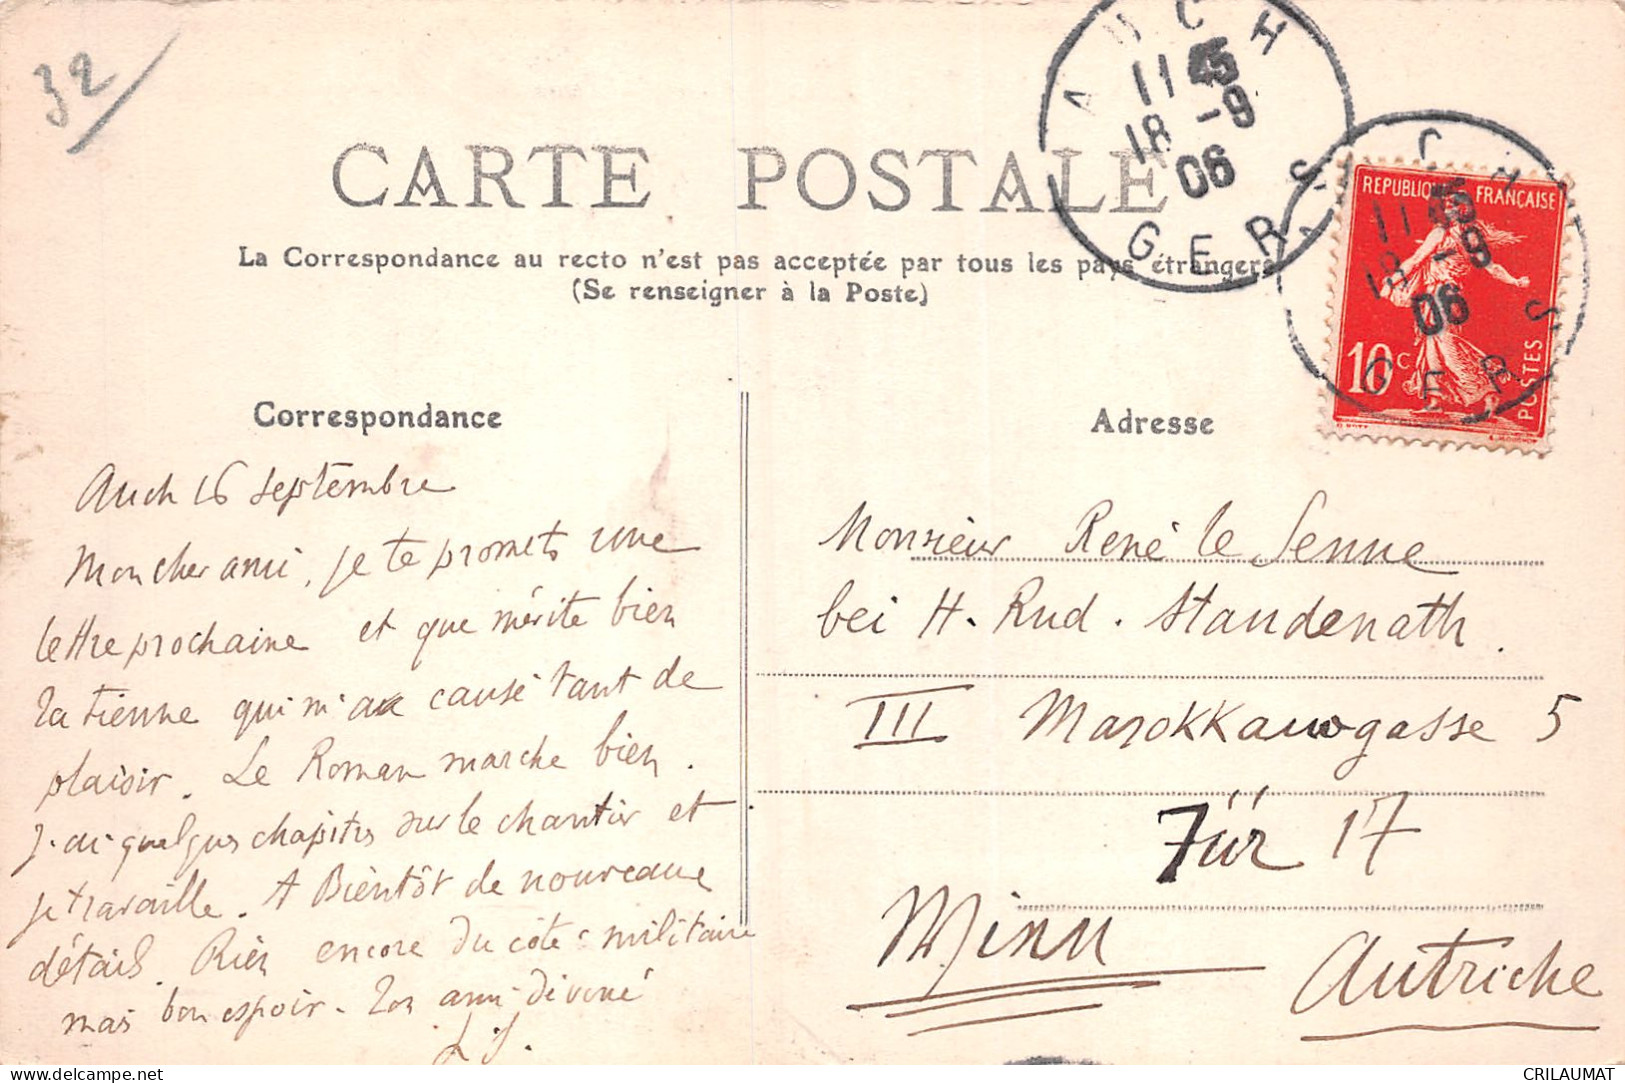 32
CARTE POSTALE
La Correspondance au recto n'est pas acceptée par tous les pays étrangers
(Se renseigner à la Poste)
AUCH
11 45
18 -9
06
GERS
REPUBLIQUE FRANÇAISE
10c
POSTES
11 45
18 -9
06
GERS
Correspondance
Auch 16 septembre
Mon cher ami, je te promets une
lettre prochaine et que mérite bien
la tienne qui m'a causé tant de
plaisir. Le Roman marche bien.
J'ai quelques chapitres sur le chantier et
je travaille. A Bientôt de nouveaux
détails. Rien encore du côté militaire
mais bon espoir. Ton ami dévoué
L S.
Adresse
Monsieur René le Senne
bei H. Rud. Standenath.
III Marokkanergasse 5
Für 17
Wien
Autriche
CRILAUMAT